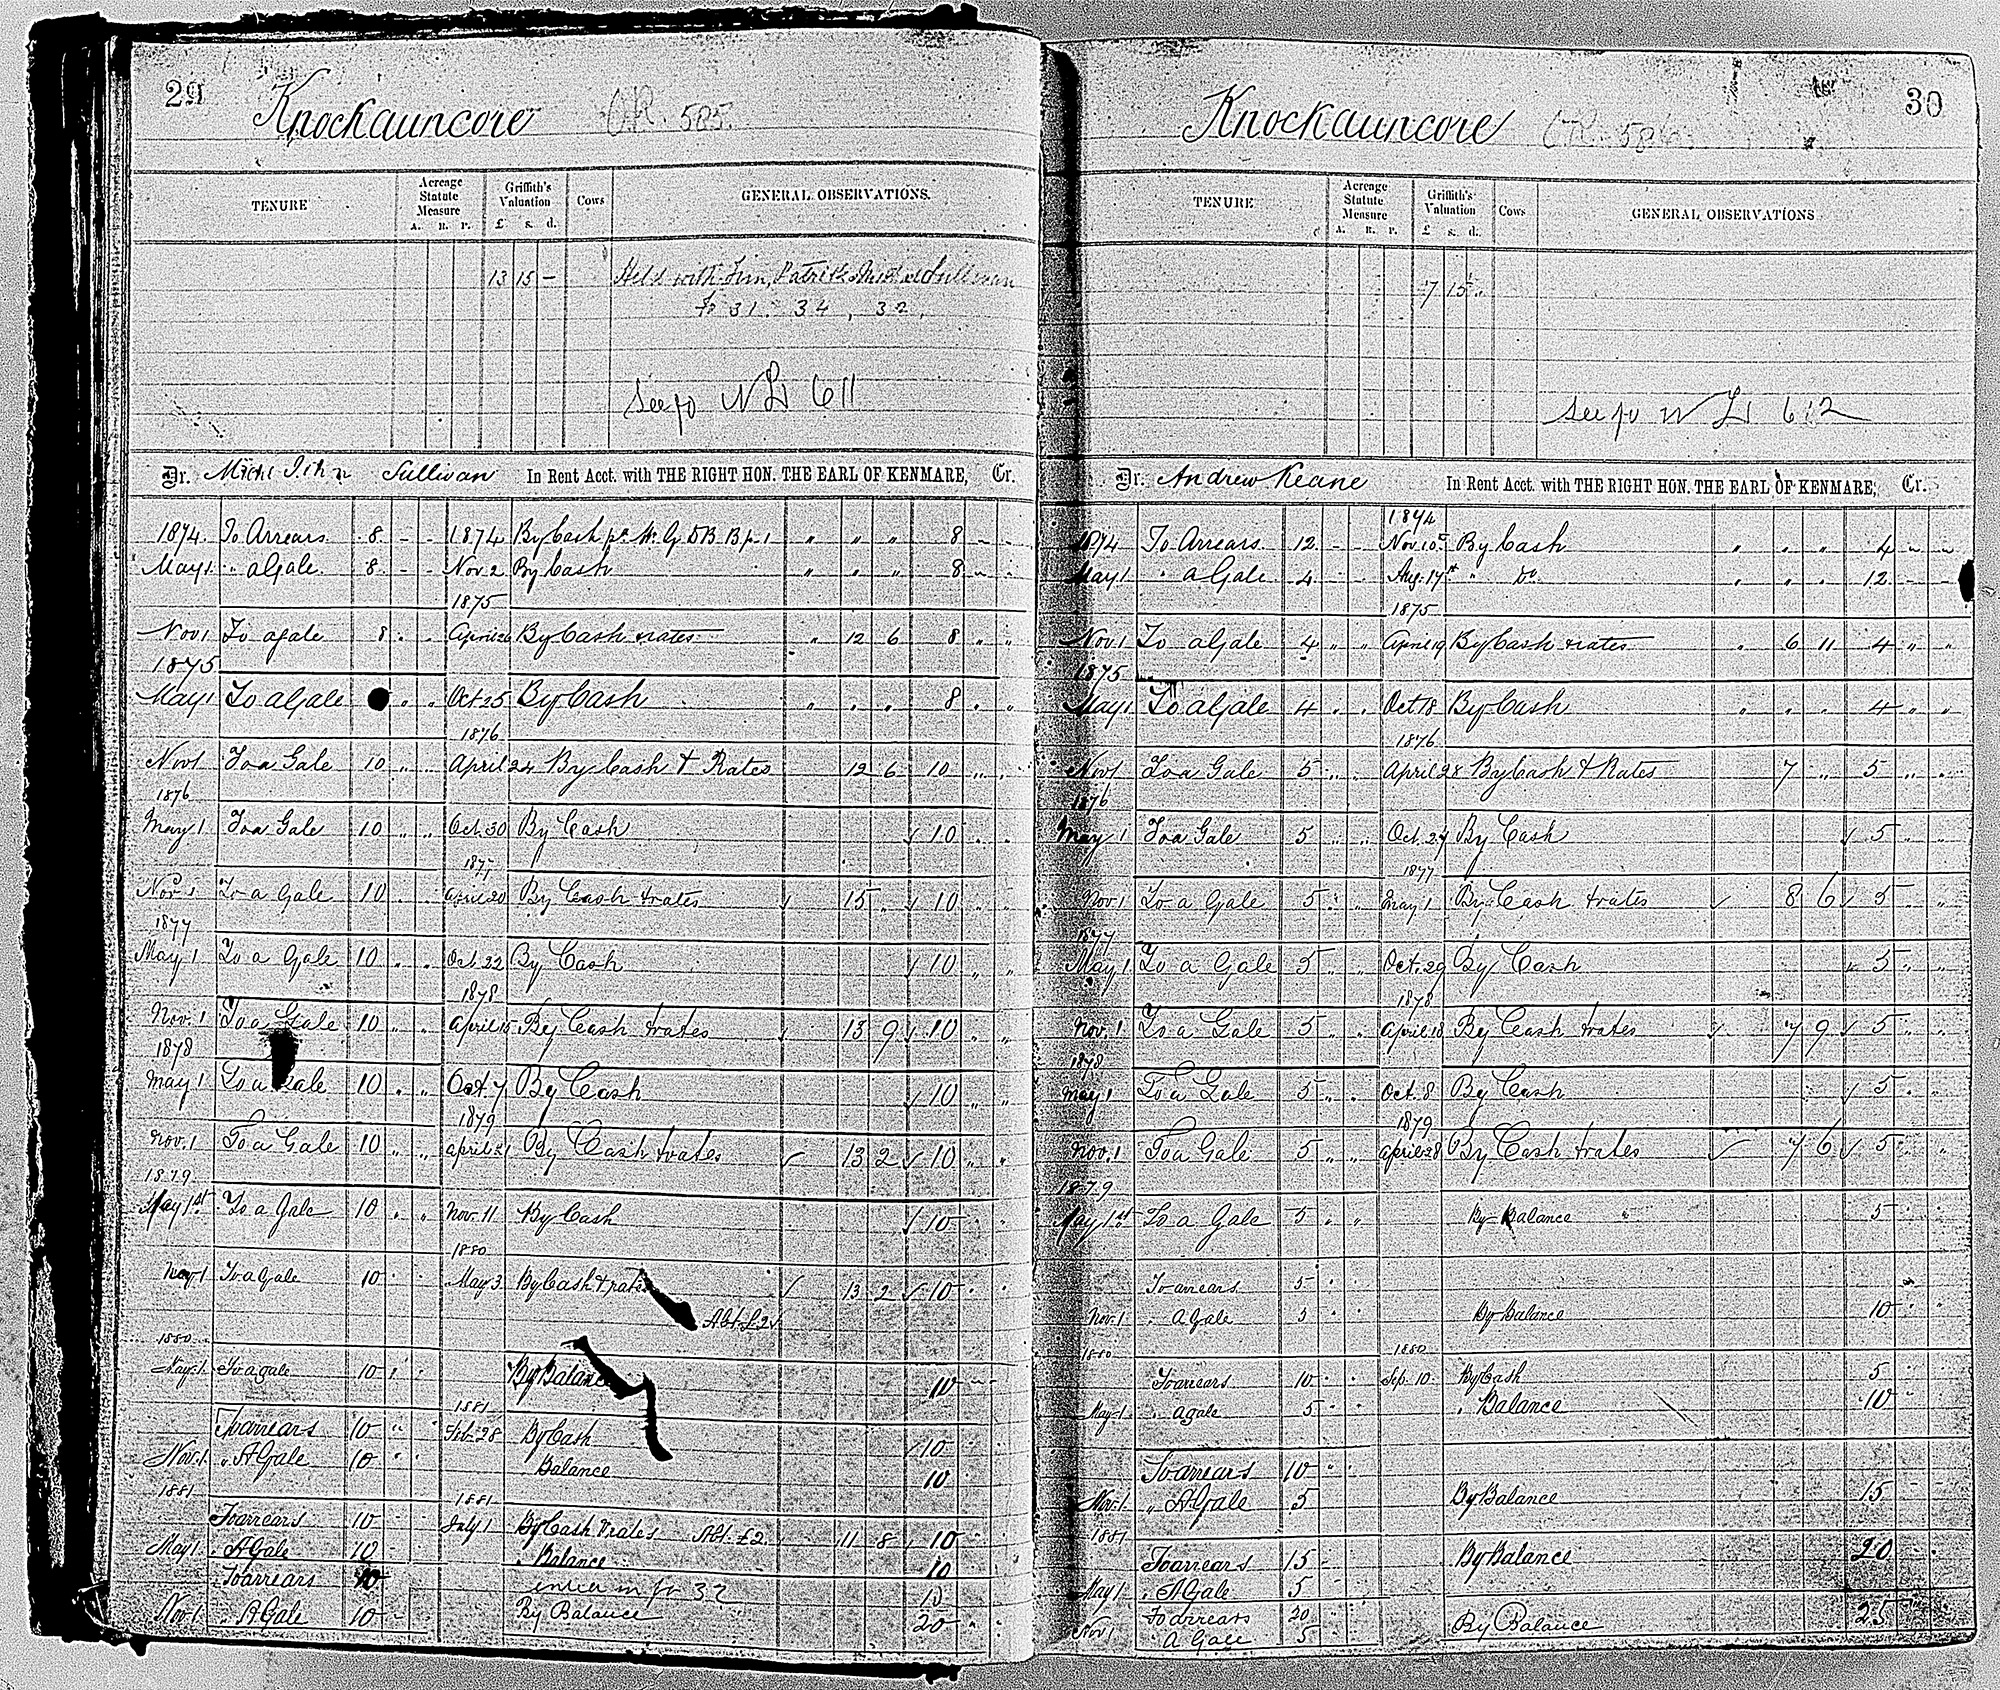 29
Knockauncore O.R. 585.
TENURE Acreage Statute Measure A. R. P. Griffith's Valuation £ s. d. Cows GENERAL OBSERVATIONS.
13 15 – Held with Tim, Patrick & Mich. Sullivan
fo 31. 34, 32,
See fo N L 611
Dr. Michl John Sullivan In Rent Acct. with THE RIGHT HON. THE EARL OF KENMARE, Cr.
1874. To Arrears 8 - - 1874 By Cash pr Mr G DB Bp 1 " " " 8 - -
May 1. " a Gale. 8 - - Nov 2 By Cash " " " 8 - -
1875
Nov 1 To a gale 8 . . April 26 By Cash & rates " 12 6 8 " "
1875
May 1 To a Gale " " Oct 25 By Cash " " " 8 . "
1876
Nov 1 To a Gale 10 " " April 24 By Cash & Rates 12 6 10 " "
1876
May 1 To a Gale 10 " " Oct. 30 By Cash ✓ 10 . .
1877
Nov 1 To a Gale 10 . . April 20 By Cash & rates ✓ 15 " ✓ 10 " "
1877
May 1 To a Gale 10 . . Oct. 22 By Cash ✓ 10 " "
1878
Nov. 1 To a Gale 10 " " April 15 By Cash & rates ✓ 13 9 ✓ 10 " "
1878
May 1 To a Gale 10 . " Oct. 7 By Cash ✓ 10 " "
1879
Nov. 1 To a Gale 10 " " April 21 By Cash & rates ✓ 13 2 ✓ 10 " "
1879
May 1st To a Gale 10 . " Nov. 11 By Cash ✓ 10 - "
1880
Nov 1 To a Gale 10 . . May 3 By Cash & rates ✓ 13 2 ✓ 10 . .
Abt. £2 ✓
1880
May 1 To a gale 10 . . By Balance 10 - -
1881
To arrears 10 " . Feb. 28 By Cash ✓ 10
Nov. 1. " A Gale 10 " . Balance 10
1881 1881
To arrears 10 July 1 By Cash & rates Abt. £2. 11 8 ✓ 10
May 1. " A Gale 10 - " Balance 10
To arrears 10 entier in fo 32 10
Nov. 1. " A Gale 10 - By Balance 20 "
30
Knockauncore O.R. 586
TENURE Acreage Statute Measure A. R. P. Griffith's Valuation £ s. d. Cows GENERAL OBSERVATIONS
7 15 "
See fo N L 612
Dr. Andrew Keane In Rent Acct. with THE RIGHT HON. THE EARL OF KENMARE, Cr.
1874
1874 To Arrears 12 - - Nov 10 By Cash " " " 4 - -
May 1 " a Gale 4 - . Aug. 17th " Do " " " 12 - -
1875
Nov. 1 To a Gale 4 " " April 19 By Cash & rates " 6 11 4 " "
1875
May 1 To a Gale 4 . . Oct 18 By Cash " " " 4 " "
1876
Nov 1 To a Gale 5 " . April 28 By Cash & Rates 7 " 5 " "
1876
May 1 To a Gale 5 " " Oct. 27 By Cash ✓ 5 . "
1877
Nov. 1 To a Gale 5 . " May 1 By Cash & rates ✓ 8 6 ✓ 5 " "
1877
May 1 To a Gale 5 " " Oct. 29 By Cash ✓ 5 . "
1878
Nov. 1 To a Gale 5 " " April 18 By Cash & rates ✓ 7 9 ✓ 5 " "
1878
May 1 To a Gale 5 " . Oct. 8 By Cash ✓ 5 . "
1879
Nov. 1 To a Gale 5 " " April 28 By Cash & rates ✓ 7 6 ✓ 5 . "
1879
May 1st To a Gale 5 . " By Balance 5 . .
To arrears 5 "
Nov. 1 " A Gale 5 " " By Balance 10 . "
1880 1880
To arrears 10 . . Sep. 10 By Cash 5
May 1 " a gale 5 " . " Balance 10 "
To arrears 10 " .
Nov. 1 " A Gale 5 By Balance 15 -
1881
To arrears 15 - By Balance 20
May 1 " A Gale 5 -
To arrears 20
Nov 1 A Gale 5 . By Balance 25